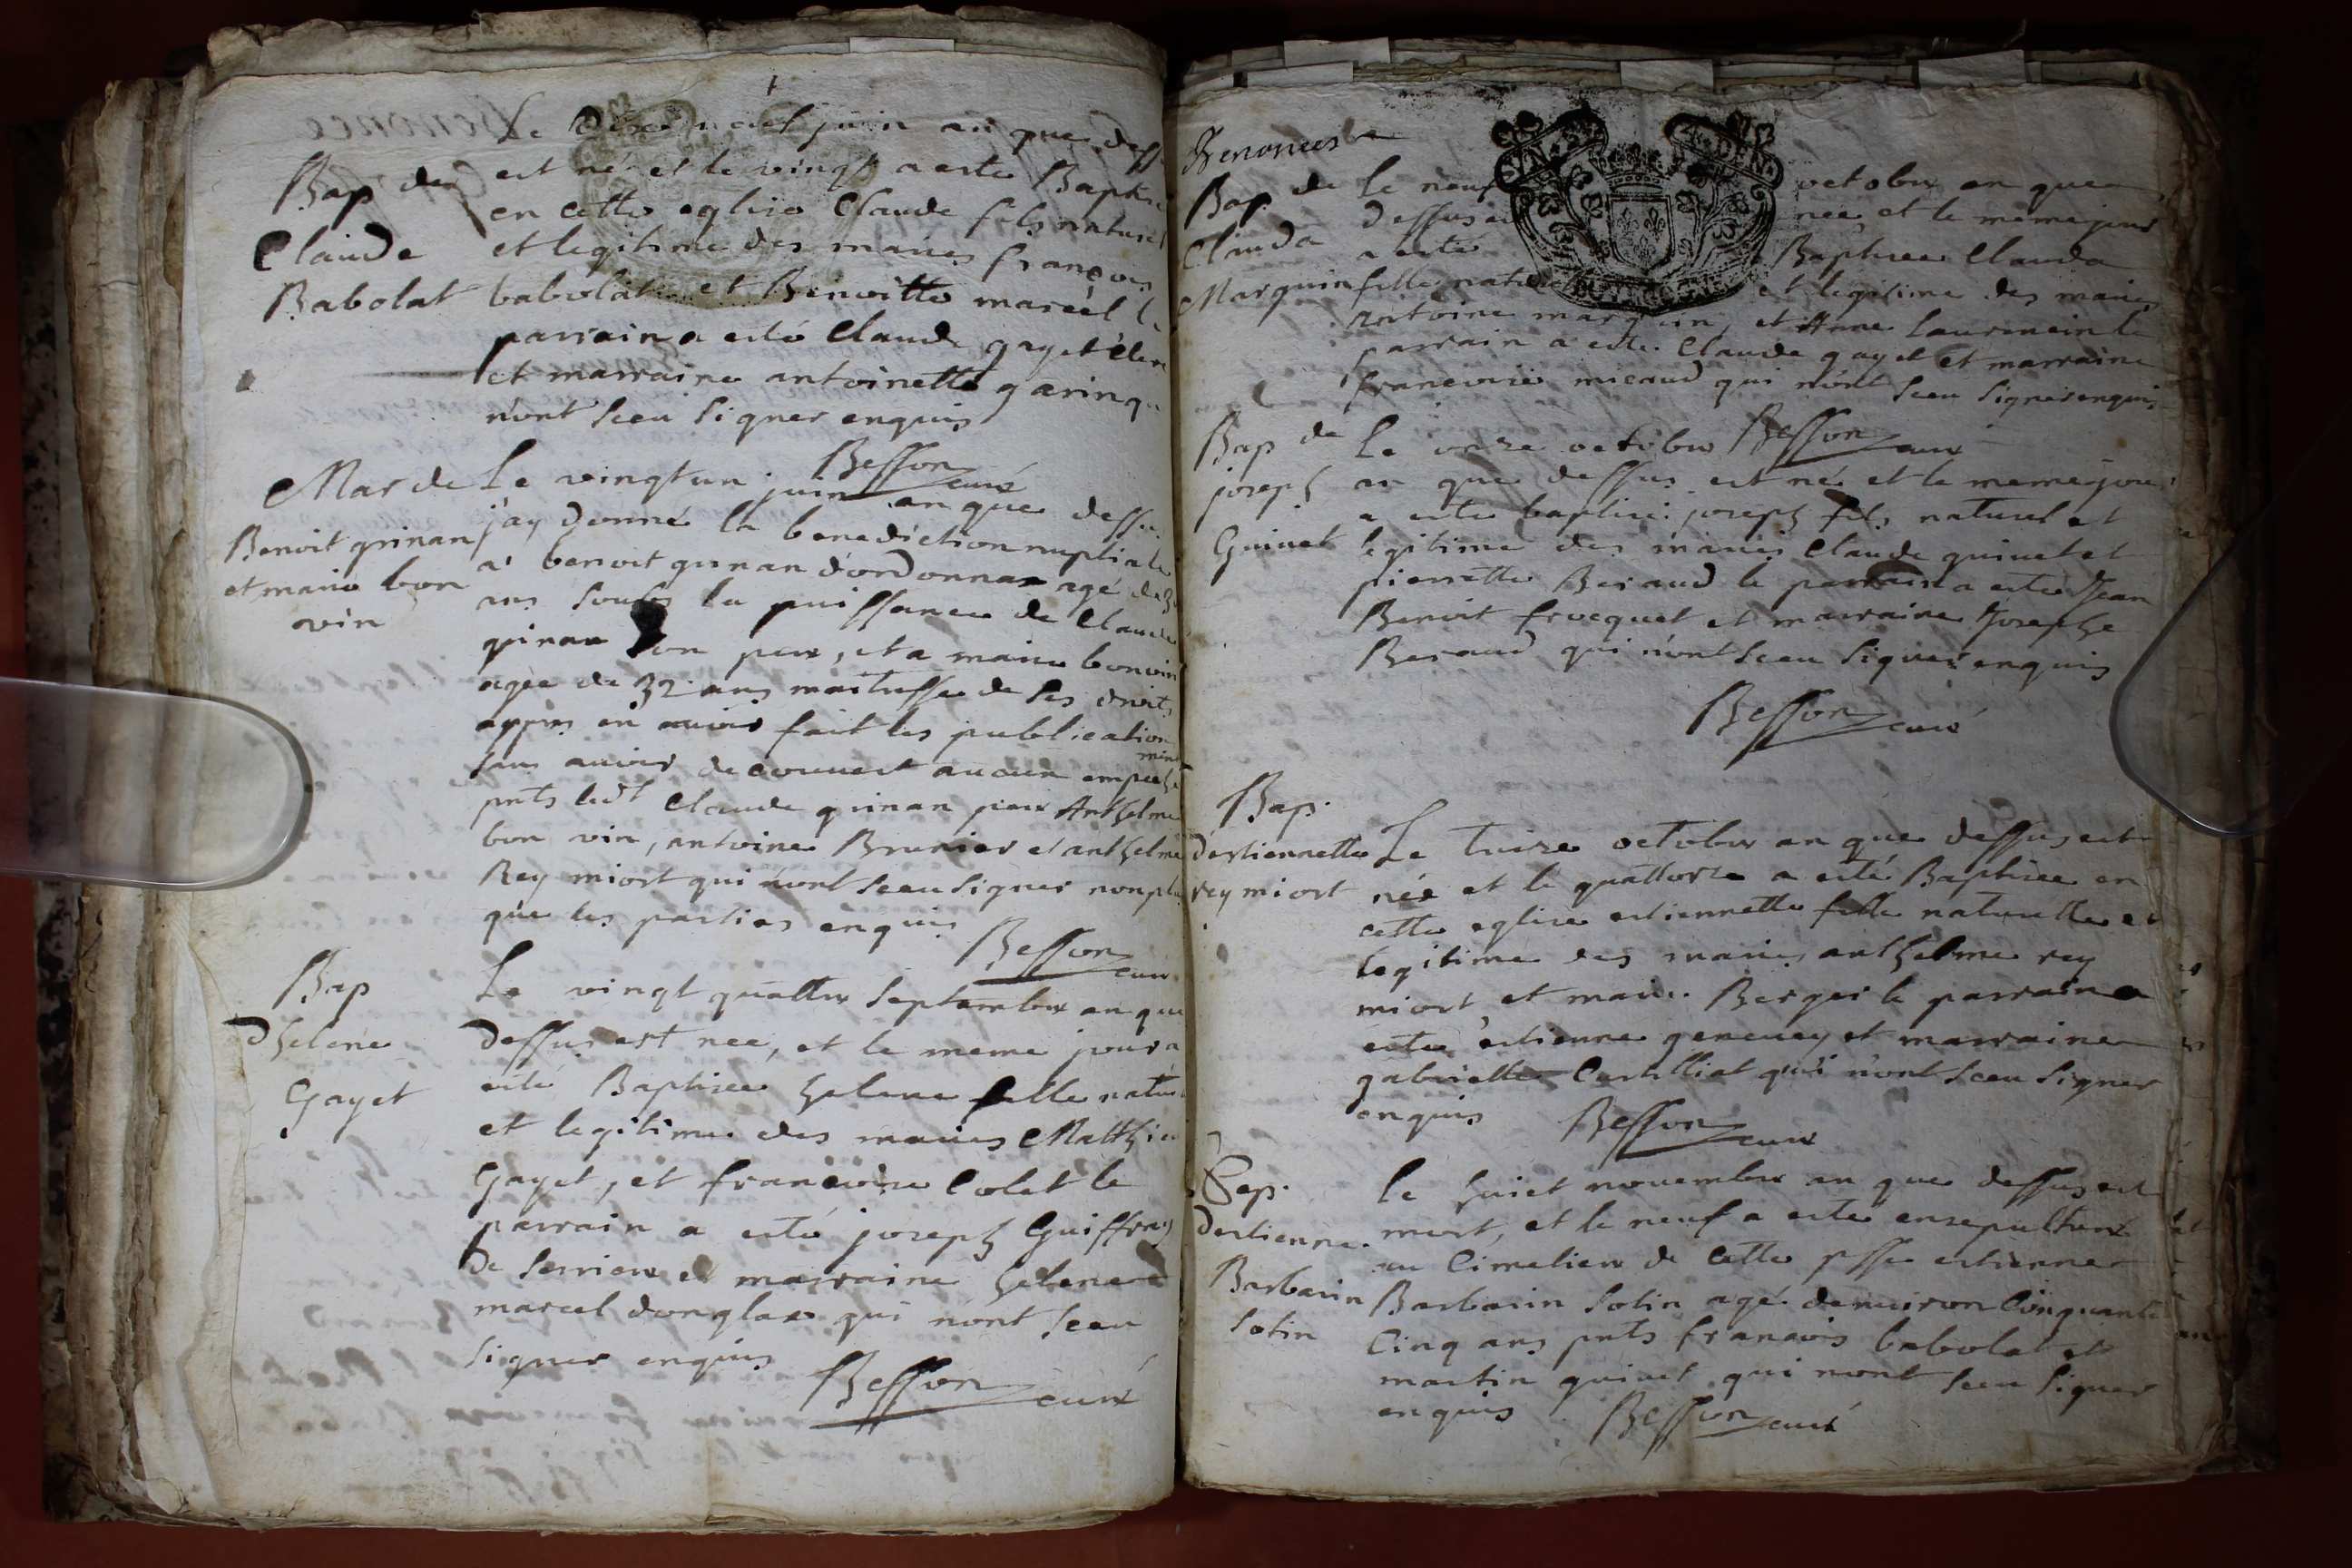 Le dixe neuf juin an que dess
Bap de est né et le vingt a esté Baptisé
en cette eglise Claude fils naturel
Claude et legitime des mariés françois
Babolat babolat et Benoitte marcel le
parrain a esté Claude gayet clerc
et marraine antoinette garin qui
n'ont sceu signer enquis
Besson curé
Mar de Le vingt un juin an que dessu
Benoit guinan j'ay donné la benediction nuptiale
et marie bon vin a benoit guinan d'ordonnaz agé de
ans soubs la puissance de Claude
guinan son pere, et a marie bonvin
agée de 32 ans maitresse de ses droits
appres en avoir fait les publication
sans avoir decouvert aucun empeche
ment
pnts ledt Claude guinan pere Anthelme
bon vin, antoine Brunier et anthelme
Rey miort qui n'ont sceu signer non plu
que les parties enquis
Besson curé
Bap Le vingt quattre Septembre an que
dhelene dessus est nee, et le meme jour a
Gayet esté Baptisee helene fille natur
et legitime des mariés Matthieu
Gayet, et françoise Colet le
parrain a esté joseph Guiffray
de serriere et marraine helene
marcel donglas qui n'ont sceu
signer enquis
Besson curé
Benonces
Bap. de le neuf octobre an que
Clauda dessus est née et le meme jour
a esté Baptisee Clauda
Marquin fille naturelle et legitime des mariés
antoine marquin, et Anne laurent le
parrain a esté Claude gayet et marraine
françoise micaud qui n'ont sceu signer enquis
Besson curé
Bap de le onze octobre
joseph an que dessus est né et le meme jour
a esté baptisé joseph fils naturel et
Guinet legitime des mariés Claude guinet et
pierrette Beraud le parrain a esté Jean
Benoit frocquet et marraine Josephe
Beraud qui n'ont sceu signer enquis
Besson curé
Bap.
destiennette Le treize octobre an que dessus est
rey miort née et le quattorze a esté Baptisee en
cette eglise estiennette fille naturelle et
legitime des mariés anthelme rey
miort, et marie Berger le parrain a
esté estienne genevey et marraine
gabrielle Castilliat qui n'ont sceu signer
enquis
Besson curé
Sep. le huict novembre an que dessus est
destienne mort, et le neuf a esté ensepulturé
au Cimetiere de cette psse estienne
Barbarin Barbarin Sotin agé denviron Cinquante
Sotin Cinq ans pnts françois babolat et
martin guinet qui n'ont sceu signer
enquis
Besson curé